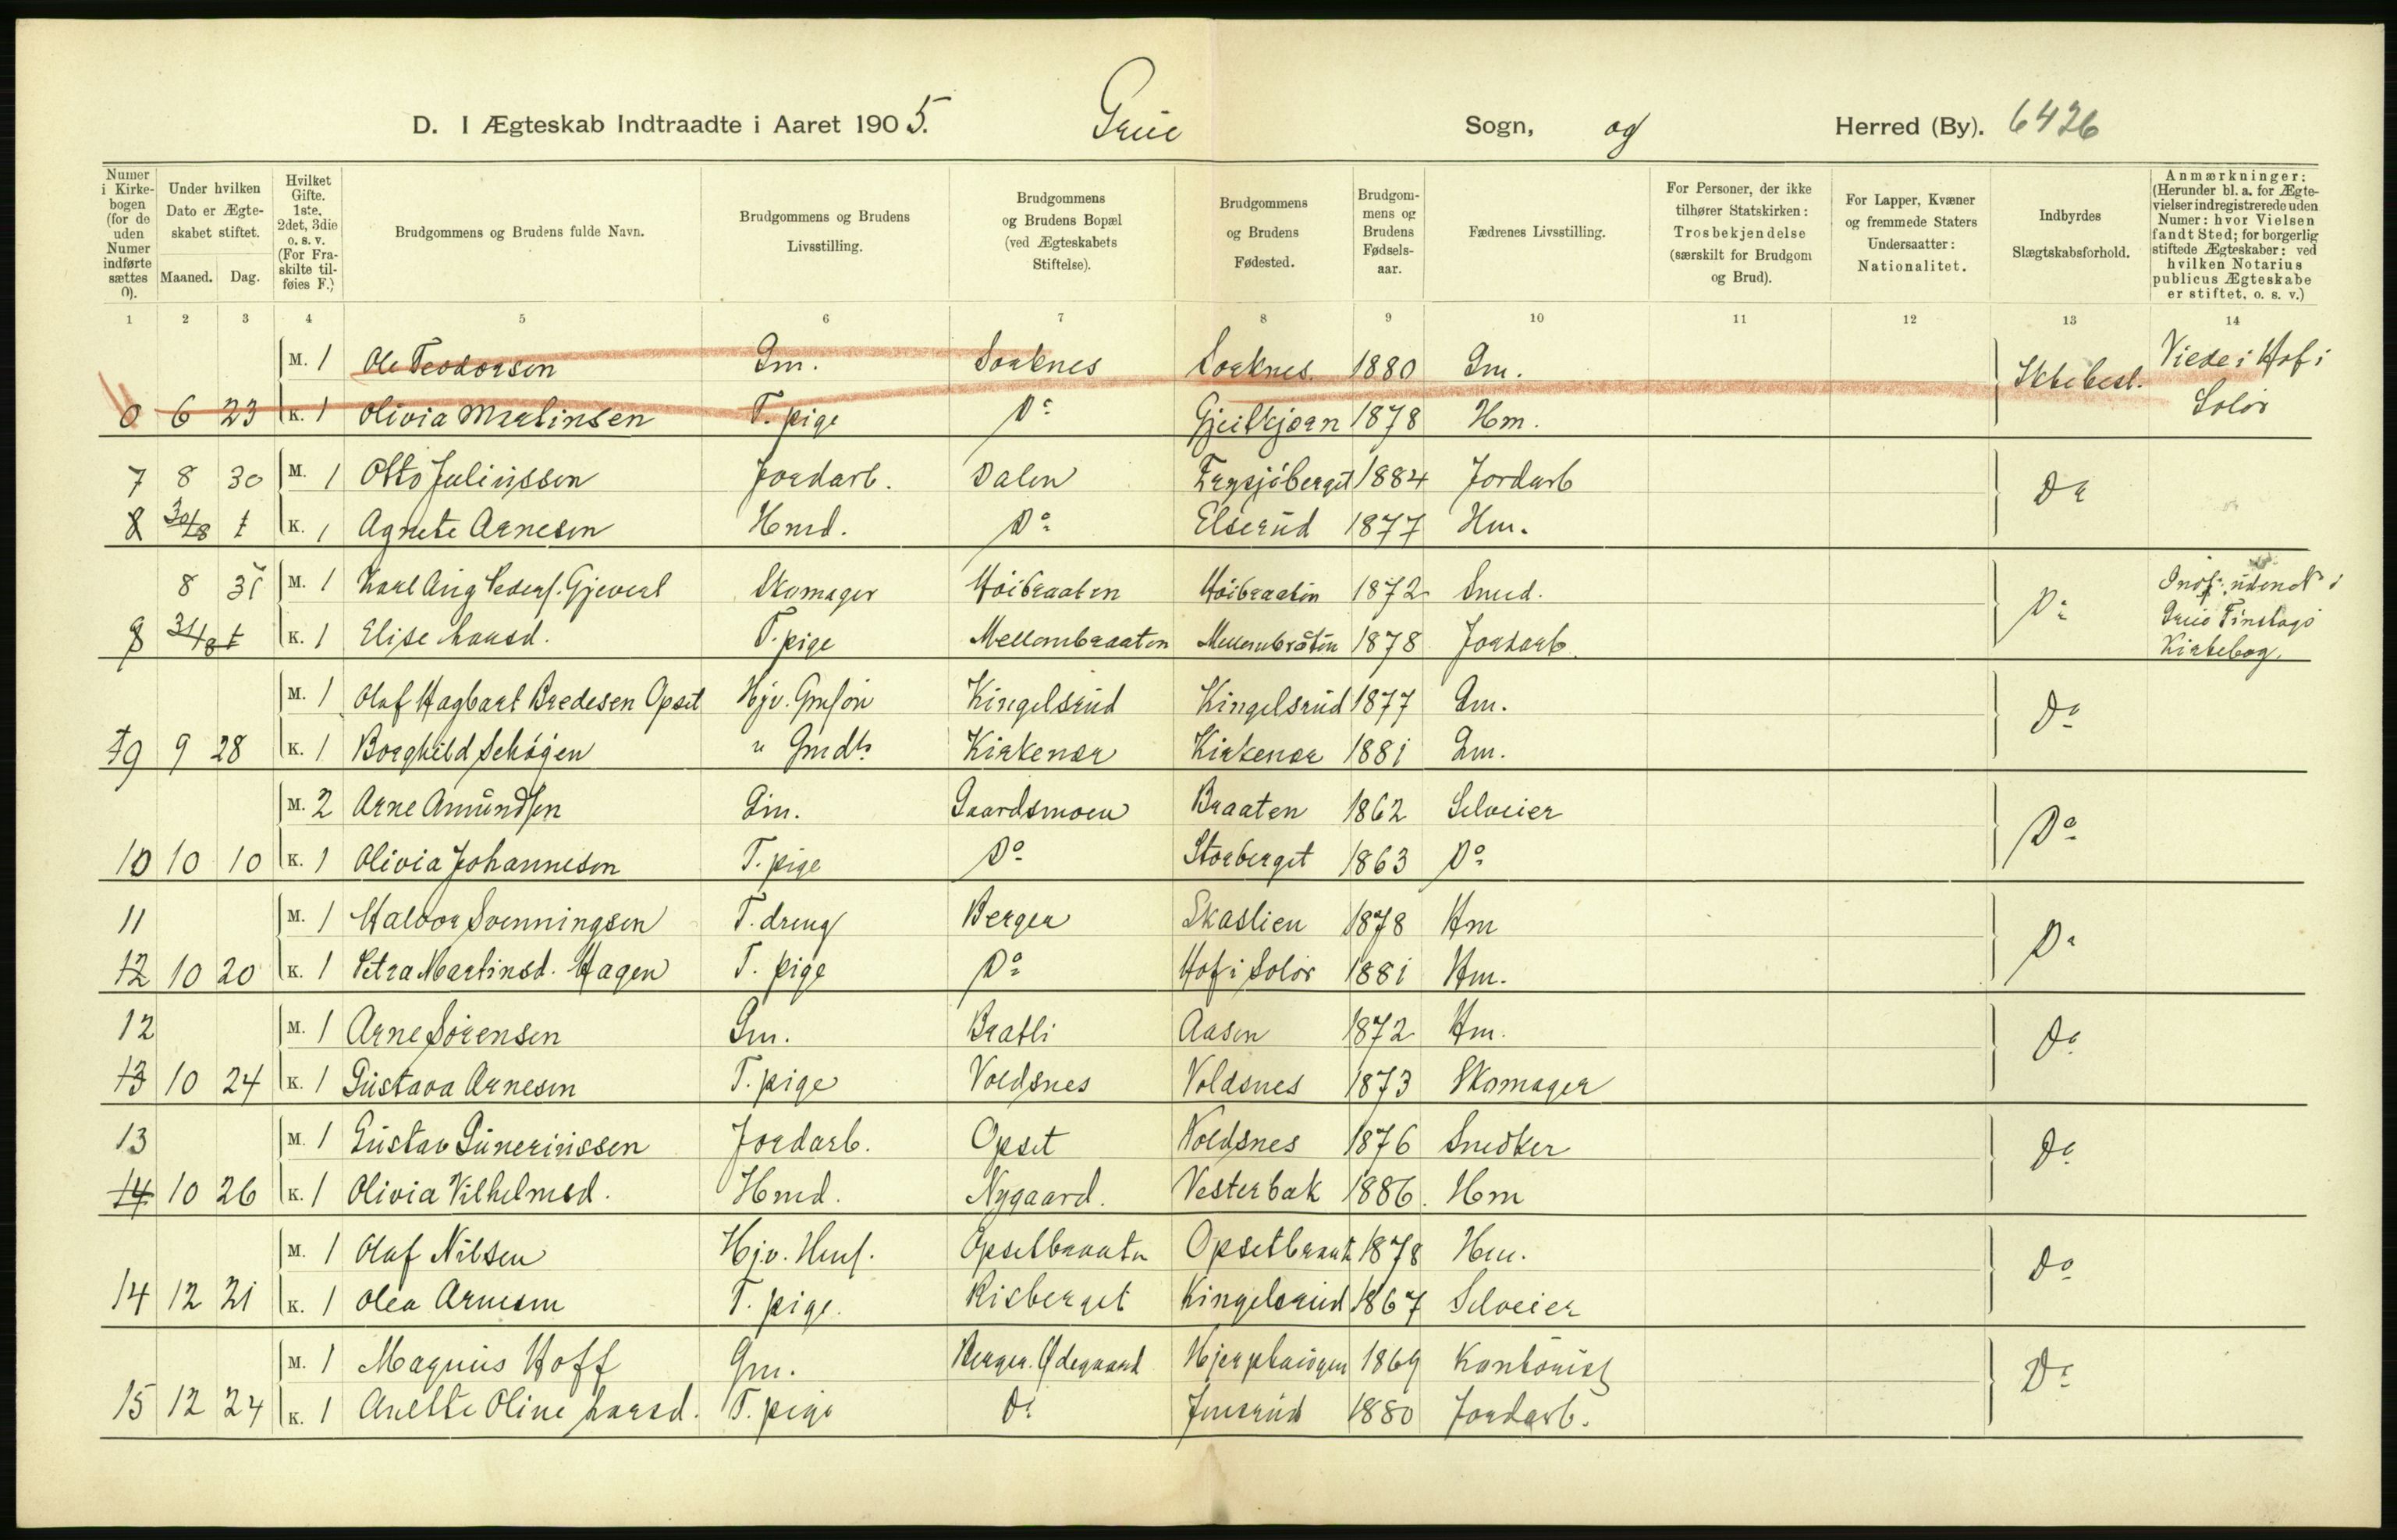 D. I Ægteskab Indtraadte i Aaret 1905. Grue Sogn, og Herred (By). 6426
Numer i Kirkebogen (for de uden Numer indførte sættes 0).
Under hvilken Dato er Ægteskabet stiftet.
Maaned. Dag.
Hvilket Gifte. 1ste, 2det, 3die o. s. v. (For Fraskilte tilføies F.)
Brudgommens og Brudens fulde Navn.
Brudgommens og Brudens Livsstilling.
Brudgommens og Brudens Bopæl (ved Ægteskabets Stiftelse).
Brudgommens og Brudens Fødested.
Brudgommens og Brudens Fødselsaar.
Fædrenes Livsstilling.
For Personer, der ikke tilhører Statskirken: Trosbekjendelse (særskilt for Brudgom og Brud).
For Lapper, Kvæner og fremmede Staters Undersaatter: Nationalitet.
Indbyrdes Slægtskabsforhold.
Anmærkninger: (Herunder bl. a. for Ægtevielser indregistrerede uden Numer: hvor Vielsen fandt Sted; for borgerlig stiftede Ægteskaber: ved hvilken Notarius publicus Ægteskabe er stiftet, o. s. v.)
1 2 3 4 5 6 7 8 9 10 11 12 13 14
M. 1 Ole Teodorsen Gm. Sorknes Sorknes 1880 Gm. Viede i Hof i
0 6 23 K. 1 Olivia Martinsen T. pige Do Gjeitkjærn 1878 Hm. Sktebesl. Solør
7 8 30 M. 1 Otto Juliussen Jordarb. Dalen 1884 Jordarb Do
8 30/8 t K. 1 Agnete Arnesen Hmd. Do Elserud 1877 Hm.
8 31 M. 1 Karl Aug Peders. Gjeverl Skomager Höibraaten Höibraaten 1872 Smed. uden No i
8 31/8 t K. 1 Elise Larsd. T. pige Mellembraaten Mellembråten 1878 Jordarb. Do Grue Finskogs
Kirkebog.
M. 1 Olaf Hagbart Bredesen Opset Hjv. Gmsön Kingelsrud Kingelsrud 1877 Gm. Do
9 9 28 K. 1 Borghild Schøyen " Gmdtr Kirkenær Kirkenær 1881 Gm.
M. 2 Arne Amundsen Gm. Gaardsmoen Braaten 1862 Selveier Do
10 10 10 K. 1 Olivia Johannesen T. pige Do Storberget 1863 Do
11 M. 1 Halvor Svenningsen T. dreng Berger Skaslien 1878 Hm Do
12 10 20 K. 1 Petra Martinsd. Hagen T. pige Do Hof i Solør 1881 Hm.
12 M. 1 Arne Sörensen Gm. Bratli Aasen 1872 Hm. Do
13 10 24 K. 1 Gustava Arnesen T. pige Voldsnes Voldsnes 1873 Skomager
13 M. 1 Gustav Guneriussen Jordarb. Opset Noldsnes 1876 Snedker Do
14 10 26 K. 1 Olivia Vilhelmsd. Hmd. Nygaard. Vesterbak 1886. Hm
M. 1 Olaf Nilsen Hjv. Hms. Opsetbraaten Opsetbraat 1878 Hm. Do
14 12 21 K. 1 Olea Arnesen T. pige. Risberget Kingelsrud 1867 Selveier
M. 1 Magnus Hoff Gm. Berger. Ødegaard Hjerphaugen 1869 Kantonist Do
15 12 24 K. 1 Anette Oline Larsd. T. pige Do Jmsrud 1880 Jordarb.